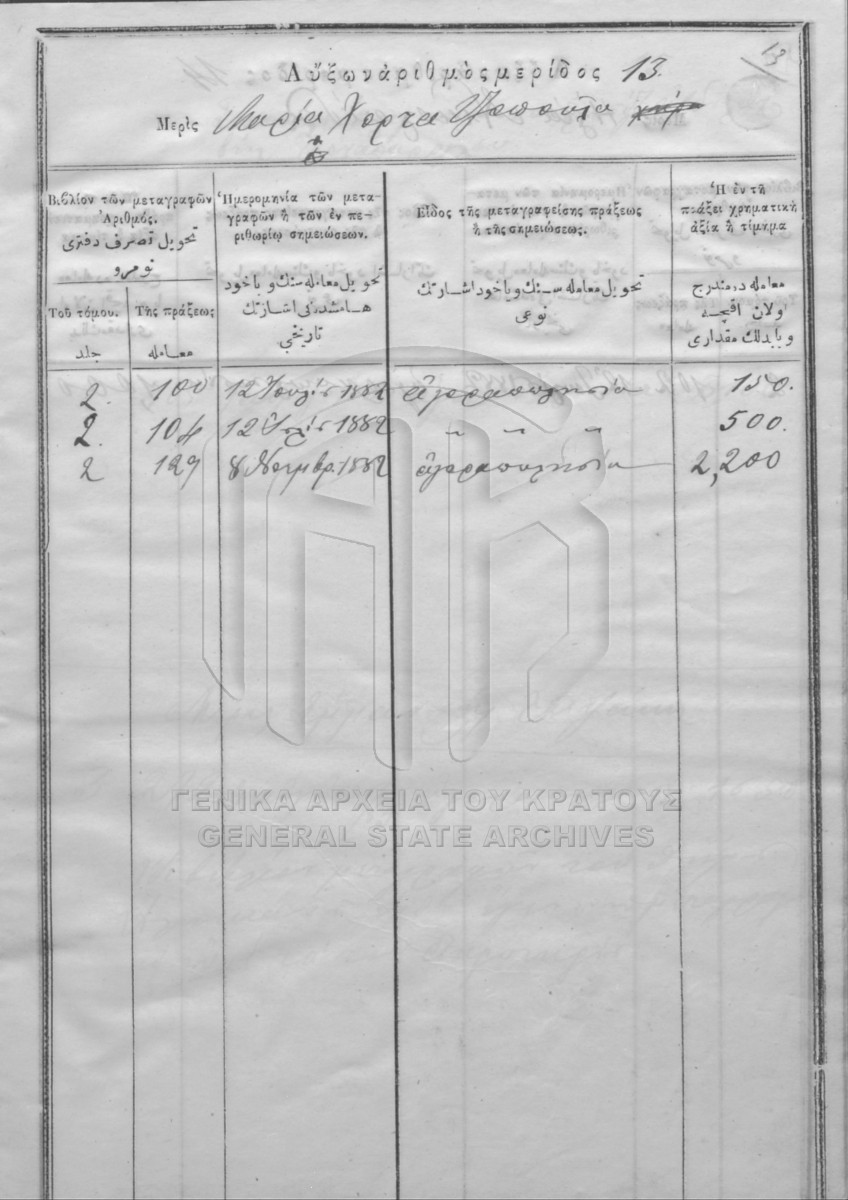 13
Αὔξων ἀριθμὸς μερίδος 13.
Μερὶς Μαρία Χορτα Τζοπούλα
Βιβλίον τῶν μεταγραφῶν
Ἀριθμός.
تحويل تصرف دفترى
نومرو
Τοῦ τόμου.
جلد
Τῆς πράξεως
معامله
Ἡμερομηνία τῶν μετα-
γραφῶν ἢ τῶν ἐν πε-
ριθωρίῳ σημειώσεων.
تحويل معامله سنك وياخود
هامشده كى اشارتك
تاريخى
Εἶδος τῆς μεταγραφείσης πράξεως
ἢ τῆς σημειώσεως.
تحويل معامله سنك وياخود اشارتك
نوعى
Ἡ ἐν τῇ
πράξει χρηματικὴ
ἀξία ἢ τίμημα
معامله ده مندرج
اولان اقچه
ويا بدلك مقدارى
2. 100 12 Ἰουλίου 1882 ἀγοραπωλησία 150.
2. 104 12 Ἰουλίου 1882 〃 〃 〃 500.
2 129 8 Νοεμβρ. 1882 ἀγοραπωλησία 2,200
ΓΕΝΙΚΑ ΑΡΧΕΙΑ ΤΟΥ ΚΡΑΤΟΥΣ
GENERAL STATE ARCHIVES